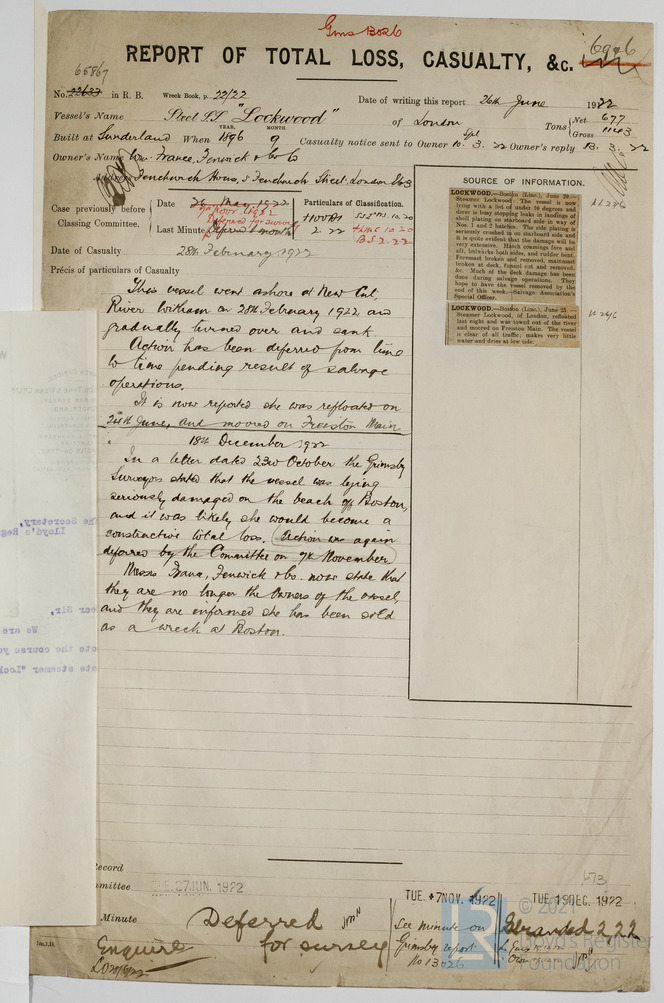 Gms Bo26
REPORT OF TOTAL LOSS, CASUALTY, &c.
6996
65867
No. 22627 in R. B. Wreck Book, p. 22/22
Date of writing this report 26th June 1922
Vessel's Name Steel SS "Lockwood" of London Tons { Net 677
Gross 1143
Built at Sunderland When YEAR. 1896 MONTH. 9 Casualty notice sent to Owner 10. 3. 22 Owner's reply 13. 3. 22
Owner's Name Wm. France, Fenwick & Co Ld
Address Fenchurch House, 5 Fenchurch Street. London EC3
Case previously before
Classing Committee.
Date
Last Minute Deferred 1 month
Deferred for survey
Particulars of Classification.
+100A1
2.22
+LMC 10.20
BS 2.22
Date of Casualty 28th February 1922
Précis of particulars of Casualty
This vessel went ashore at New Cut,
River Witham on 28th February 1922 and
gradually turned over and sank.
Action has been deferred from time
to time pending result of salvage
operations.
It is now reported she was refloated on
24th June, and moored on Freiston Main
18th December 1922
In a letter dated 23rd October the Grimsby
Surveyors stated that the vessel was lying
seriously damaged on the beach off Boston,
and it was likely she would become a
constructive total loss. (Action was again
deferred by the Committee on 7th November)
Messrs France, Fenwick & Co. now state that
they are no longer the Owners of the vessel,
and they are informed she has been sold
as a wreck at Boston.
SOURCE OF INFORMATION.
LOCKWOOD.—Boston (Linc.), June 20.—
Steamer Lockwood: The vessel is now
lying with a list of under 10 degrees and
diver is busy stopping leaks in landings of
shell plating on starboard side in way of
Nos. 1 and 2 hatches. The side plating is
seriously crushed in on starboard side and
it is quite evident that the damage will be
very extensive. Hatch coamings fore and
aft, bulwarks both sides, and rudder bent.
Foremast broken and removed, mainmast
broken at deck, funnel cut and removed,
&c. Much of the deck damage has been
done during salvage operations. They
hope to have the vessel removed by the
end of this week.—Salvage Association's
Special Officer.
LOCKWOOD.—Boston (Linc.), June 25.—
Steamer Lockwood, of London, refloated
last night and was towed out of the river
and moored on Freiston Main. The vessel
is clear of all traffic; makes very little
water and dries at low side.
he Secretary,
Lloyd's Reg
ear Sir,
We are
ote the course yo
ate steamer "Loc
ecord
mmittee
TUE. 27 JUN. 1922
TUE. 7 NOV. 1922
TUE. 19 DEC. 1922
673
Minute
Deferred
for survey
Enquire
See minute on
Grimsby report
No 13026
Stranded 2,22
LR
© 2021
Lloyd's Register
Foundation